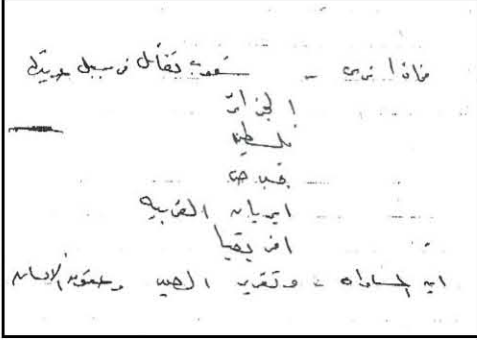 فماذا نرى - شعوب تقاتل فى سبيل حريتها
الجزائر
فلسطين
قبرص
ايريان الغربيه
افريقيا
اين المساواه - وتقرير المصير وحقوق الانسان